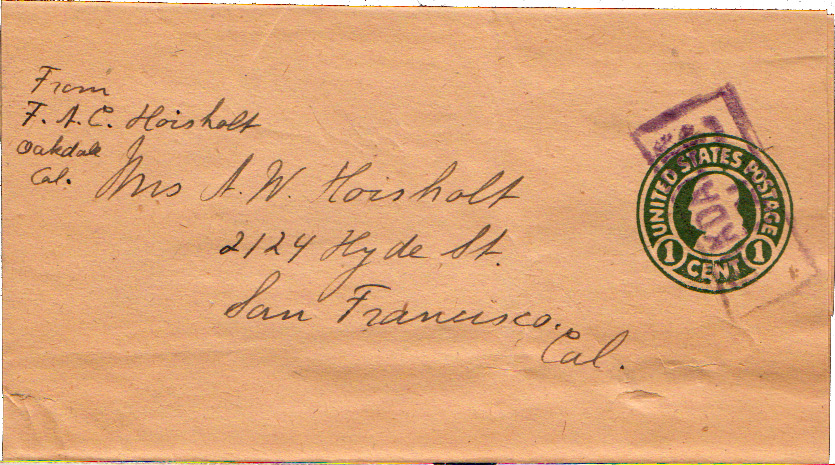 From
F. A. C. Hoisholt
Oakdale
Cal.
Mrs A. W. Hoisholt
2124 Hyde St.
San Francisco.
Cal.
UNITED STATES POSTAGE
1 CENT 1